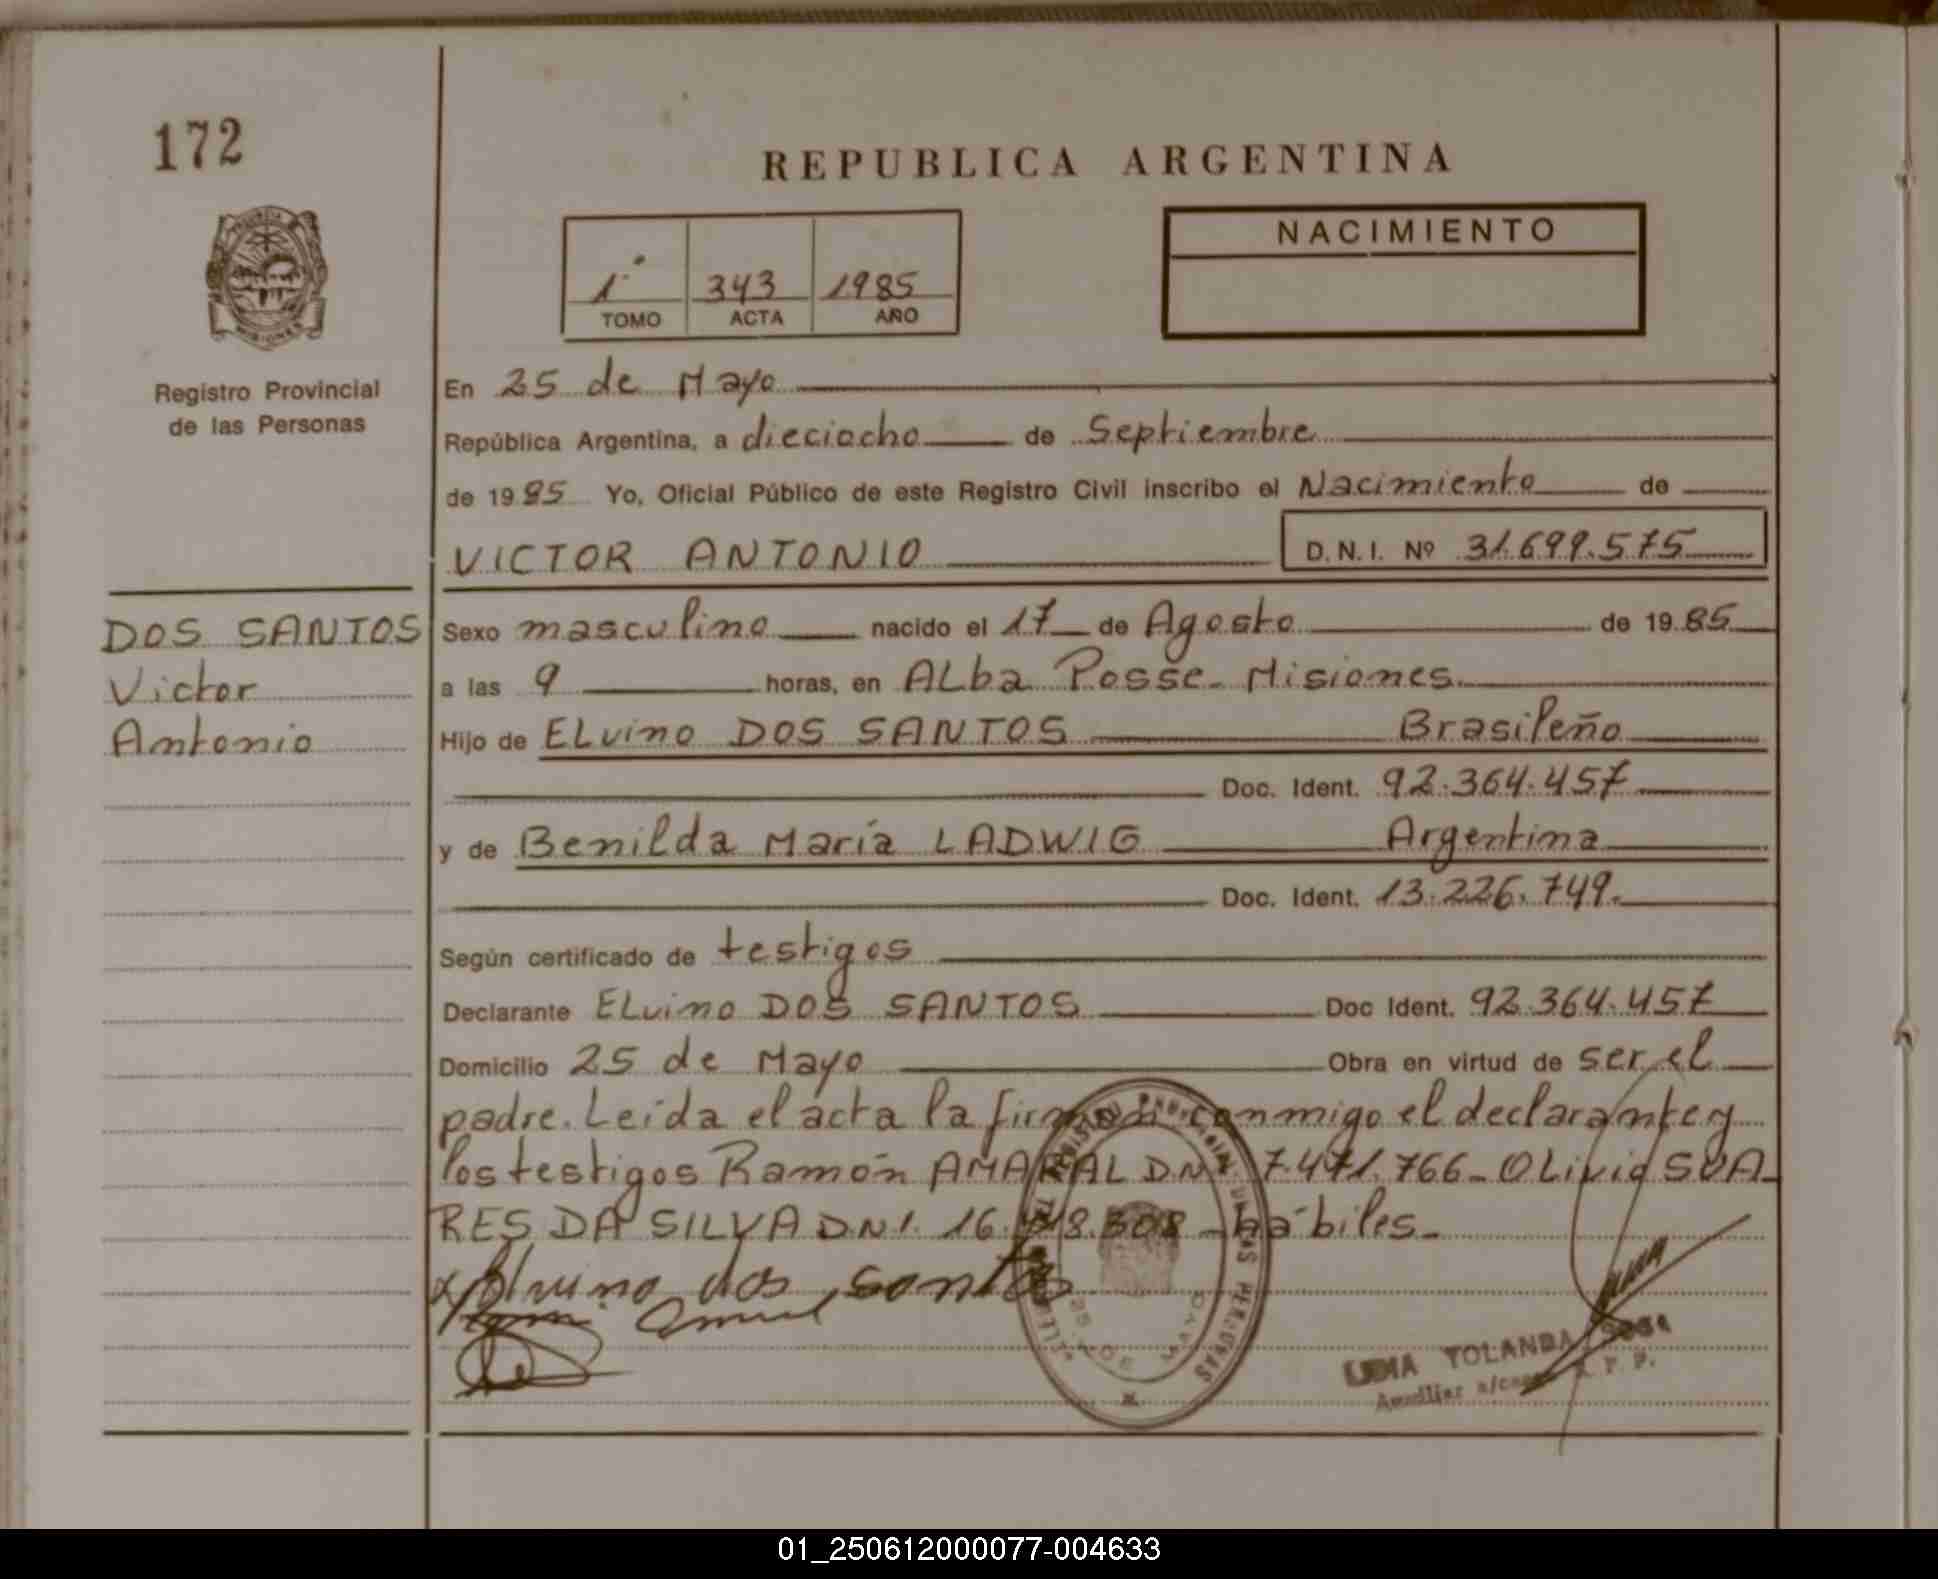 172
REPUBLICA ARGENTINA
NACIMIENTO
1º 343 1985
TOMO ACTA AÑO
MISIONES
Registro Provincial
de las Personas
En 25 de Mayo
República Argentina, a dieciocho de Septiembre
de 1985 Yo, Oficial Público de este Registro Civil inscribo el Nacimiento de
VICTOR ANTONIO D.N.I. Nº 31.699.575
DOS SANTOS
Victor
Antonio
Sexo masculino nacido el 17 de Agosto de 1985
a las 9 horas, en ALba Posse - Misiones.
Hijo de ELvino DOS SANTOS Brasileño
Doc. Ident. 92.364.457
y de Benilda María LADWIG Argentina
Doc. Ident. 13.226.749.
Según certificado de testigos
Declarante ELvino DOS SANTOS Doc Ident. 92.364.457
Domicilio 25 de Mayo Obra en virtud de ser el
padre. Leída el acta la firman conmigo el declarante y
los testigos Ramón AMARAL DNI 7.471.766 - OLivio SUA-
RES DA SILVA D.N.I. 16. .308 - hábiles.-
Elvino dos santos
25 DE MAYO
LIDIA YOLANDA
Auxiliar
01_250612000077-004633